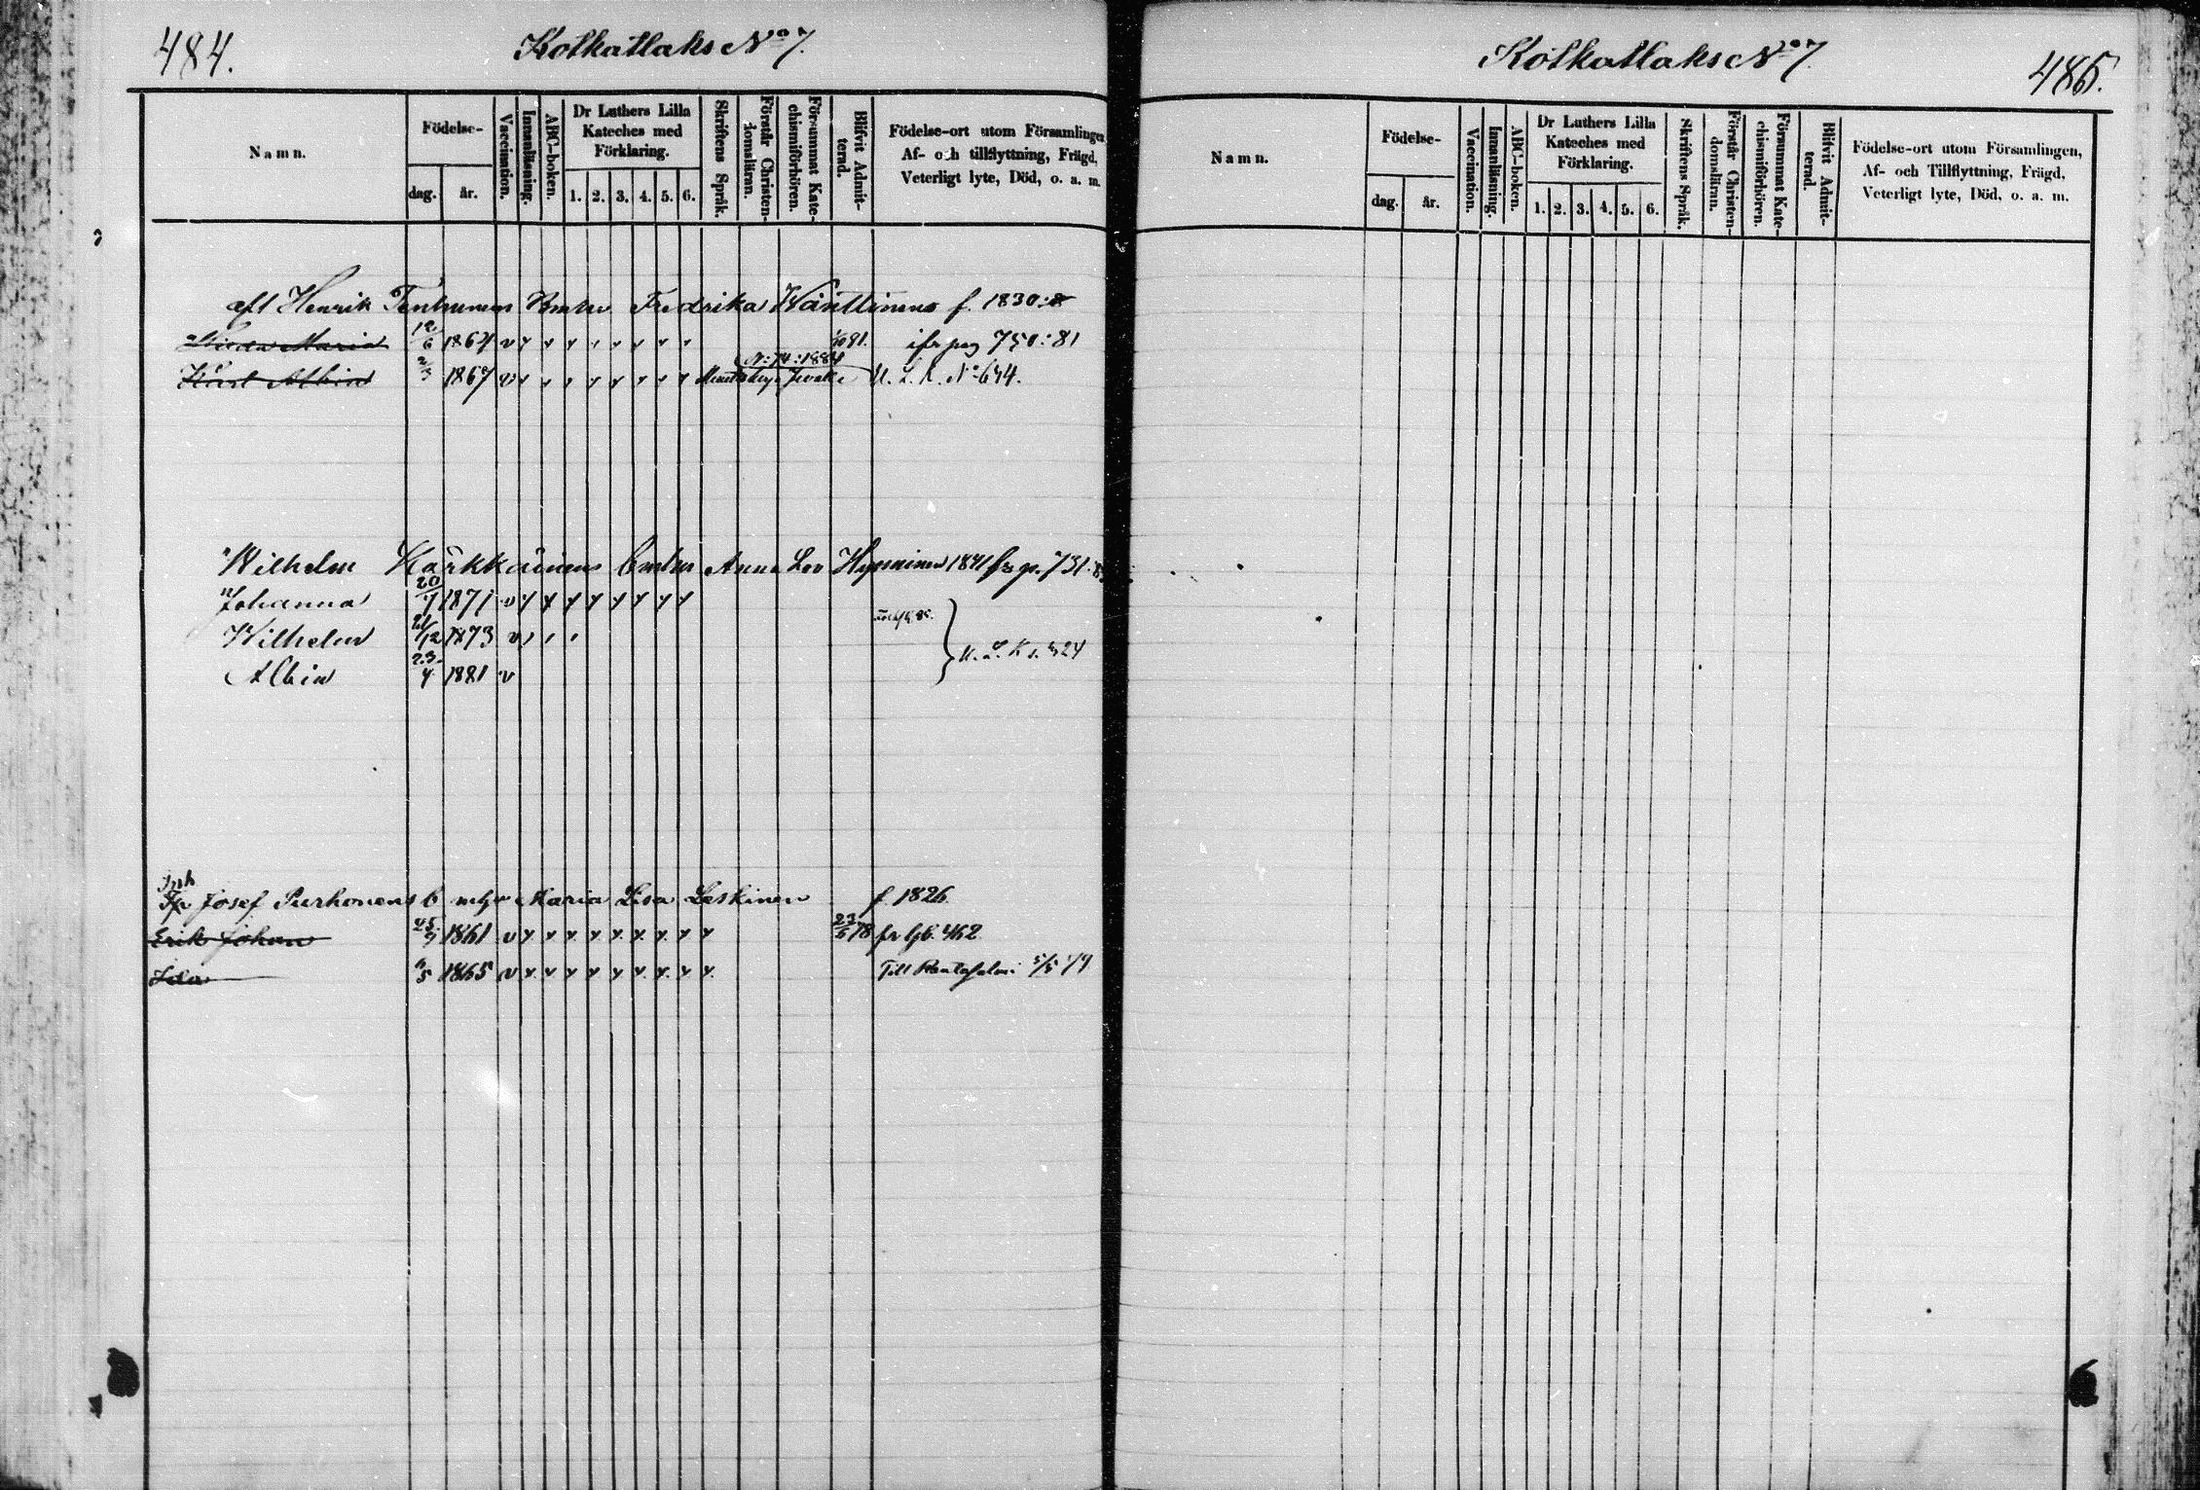 484.
Kolkatlaks No 7.
Namn.
Födelse-
dag. år.
Vaccination.
Innanläsning.
ABC-boken.
Dr Luthers Lilla Kateches med Förklaring.
1. 2. 3. 4. 5. 6.
Skriftens Språk.
Förstår Christen-domsläran.
Försummat Kate-chismiförhören.
Blifvit Admit-terad.
Födelse-ort utom Församlingen
Af- och tillflyttning, Frägd,
Veterligt lyte, Död, o. a. m.
aft Henrik Tenhunens Fredrika Wänttinens f. 1830
Maria 12/6 1864 v 81. pag 750:81
N: 74: 1884
Albin 2/3 1867 v U. L. K. No 644.
Wilhelm Kärkkäinens Anna Lov Hyvninen 1841 fr p. 731
Johanna 20/7 1871 v
Wilhelm 1873 v
U. L. K s. 424
Albin 23/4 1881 v
Josef Purhonens b Maria Lisa Leskinen f 1826
Erik Johan 25/9 1861 v 27/6 78 fr lgb. 462
Ida 6/5 1865 v Till Rantasalmi 5/5 79
Kolkatlaks No 7
485.
Namn.
Födelse-
dag. år.
Vaccination.
Innanläsning.
ABC-boken.
Dr Luthers Lilla Kateches med Förklaring.
1. 2. 3. 4. 5. 6.
Skriftens Språk.
Förstår Christen-domsläran.
Försummat Kate-chismiförhören.
Blifvit Admit-terad.
Födelse-ort utom Församlingen,
Af- och Tillflyttning, Frägd,
Veterligt lyte, Död, o. a. m.